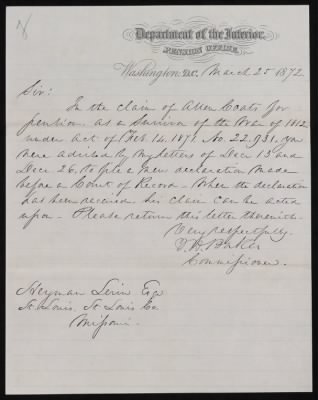 Department of the Interior,
PENSION OFFICE,
Washington, D.C., March 25 1872
Sir:
In the claim of Allen Coats for
pension, as a Survivor of the War of 1812
under Act of Feb 14. 1871. No. 22.931. you
were advised by my letters of Decr 13 and
Decr 26, to file a new declaration made
before a Court of Record - When the declaration
has been received his claim can be acted
upon - Please return this letter therewith -
Very respectfully.
Baker
Commissioner.
Heyman Esq
St Louis, St Louis Co
Missouri.